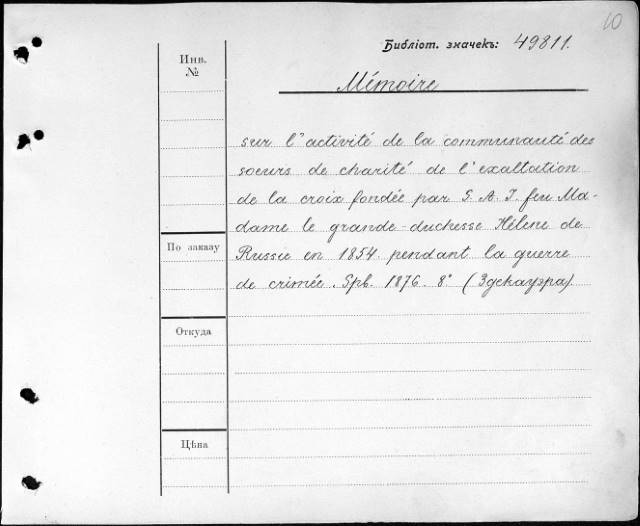 10
Библіот. значекъ: 49811.
Инв.
№
Mémoire
sur l'activité de la communauté des
soeurs de charité de l'exaltation
de la croix fondée par S. A. I. feu Ma-
dame le grande-duchesse Hélène de
Russie en 1854. pendant la guerre
de crimée. Spb. 1876. 8° (Здекауэра)
По заказу
Откуда
Цѣна